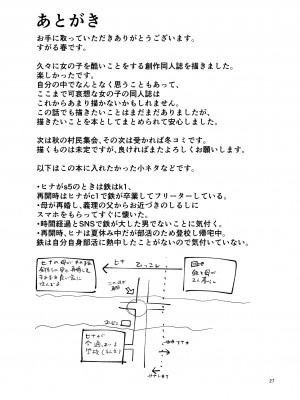 あとがき
お手に取っていただきありがとうございます。
すがる春です。
久々に女の子を酷いことをする創作同人誌を描きました。
楽しかったです。
自分の中でなんとなく思うこともあって、
ここまで可哀想な女の子の同人誌は
これからあまり描かないかもしれません。
この話でも描きたいことはまだまだありましたが、
描きたいことを本としてまとめられて安心しました。
次は秋の村民集会、その次は受かれば冬コミです。
描くものは未定ですが、良ければまたよろしくお願いします。
以下はこの本に入れたかった小ネタなどです。
・ヒナがs5のときは鉄はk1、
再開時はヒナがc1で鉄が卒業してフリーターしている。
・母が再婚し、義理の父からお近づきのしるしに
スマホをもらってすぐに懐いた。
・時間経過とSNSで鉄が大した男でないことに気付く。
・再開時、ヒナは夏休み中だが部活のため登校し帰宅中。
鉄は自分自身部活に熱中したことがないので気付いていない。
ヒナ
27